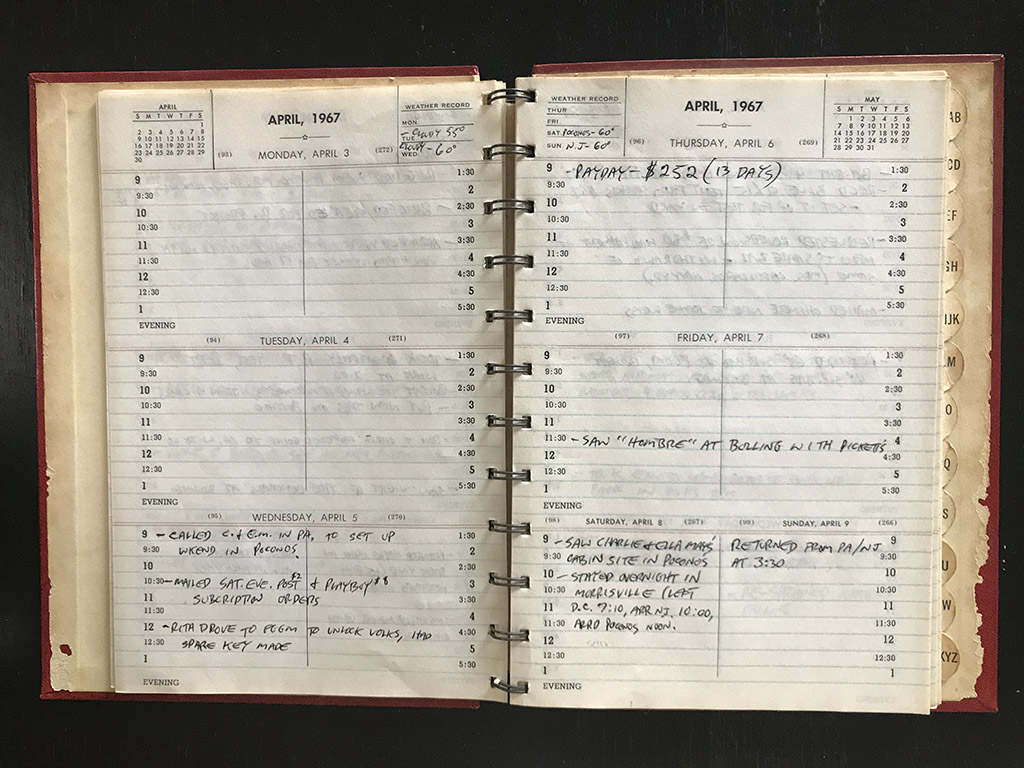 APRIL
S M T W T F S
1
2 3 4 5 6 7 8
9 10 11 12 13 14 15
16 17 18 19 20 21 22
23 24 25 26 27 28 29
30
APRIL, 1967
WEATHER RECORD
MON.
TUE. - CLOUDY 55°
WED. CLOUDY - 60°
(93) MONDAY, APRIL 3 (272)
9 1:30
9:30 2
10 2:30
10:30 3
11 3:30
11:30 4
12 4:30
12:30 5
1 5:30
EVENING
(94) TUESDAY, APRIL 4 (271)
9 1:30
9:30 2
10 2:30
10:30 3
11 3:30
11:30 4
12 4:30
12:30 5
1 5:30
EVENING
(95) WEDNESDAY, APRIL 5 (270)
9 - CALLED C. & E.M. IN PA, TO SET UP 1:30
9:30 WKEND IN POCONOS. 2
10 2:30
10:30 - MAILED SAT. EVE. POST $2 & PLAYBOY $8 3
11 SUBCRIPTION ORDERS 3:30
11:30 4
12 - RITA DROVE TO TO UNLOCK VOLKS, HAD 4:30
12:30 SPARE KEY MADE 5
1 5:30
EVENING
WEATHER RECORD
THUR
FRI
SAT. POCONOS - 60°
SUN. N.J - 60°
APRIL, 1967
MAY
S M T W T F S
1 2 3 4 5 6
7 8 9 10 11 12 13
14 15 16 17 18 19 20
21 22 23 24 25 26 27
28 29 30 31
(96) THURSDAY, APRIL 6 (269)
9 - PAYDAY - $252 (13 DAYS) 1:30
9:30 2
10 2:30
10:30 3
11 3:30
11:30 4
12 4:30
12:30 5
1 5:30
EVENING
(97) FRIDAY, APRIL 7 (268)
9 1:30
9:30 2
10 2:30
10:30 3
11 3:30
11:30 - SAW "HOMBRE" AT BOLLING WITH PICKETTS 4
12 4:30
12:30 5
1 5:30
EVENING
(98) SATURDAY, APRIL 8 (267) (99) SUNDAY, APRIL 9 (266)
9 - SAW CHARLIE & ELLA MAE'S RETURNED FROM PA/NJ 9
9:30 CABIN SITE IN POCONOS AT 3:30 9:30
10 - STAYED OVERNIGHT IN 10
10:30 MORRISVILLE (LEFT 10:30
11 D.C. 7:10, ARR NJ. 10:00, 11
11:30 ARRD POCONOS NOON. 11:30
12 12
12:30 12:30
1 1
EVENING
AB
CD
EF
GH
IJK
M
O
Q
S
U
W
XYZ